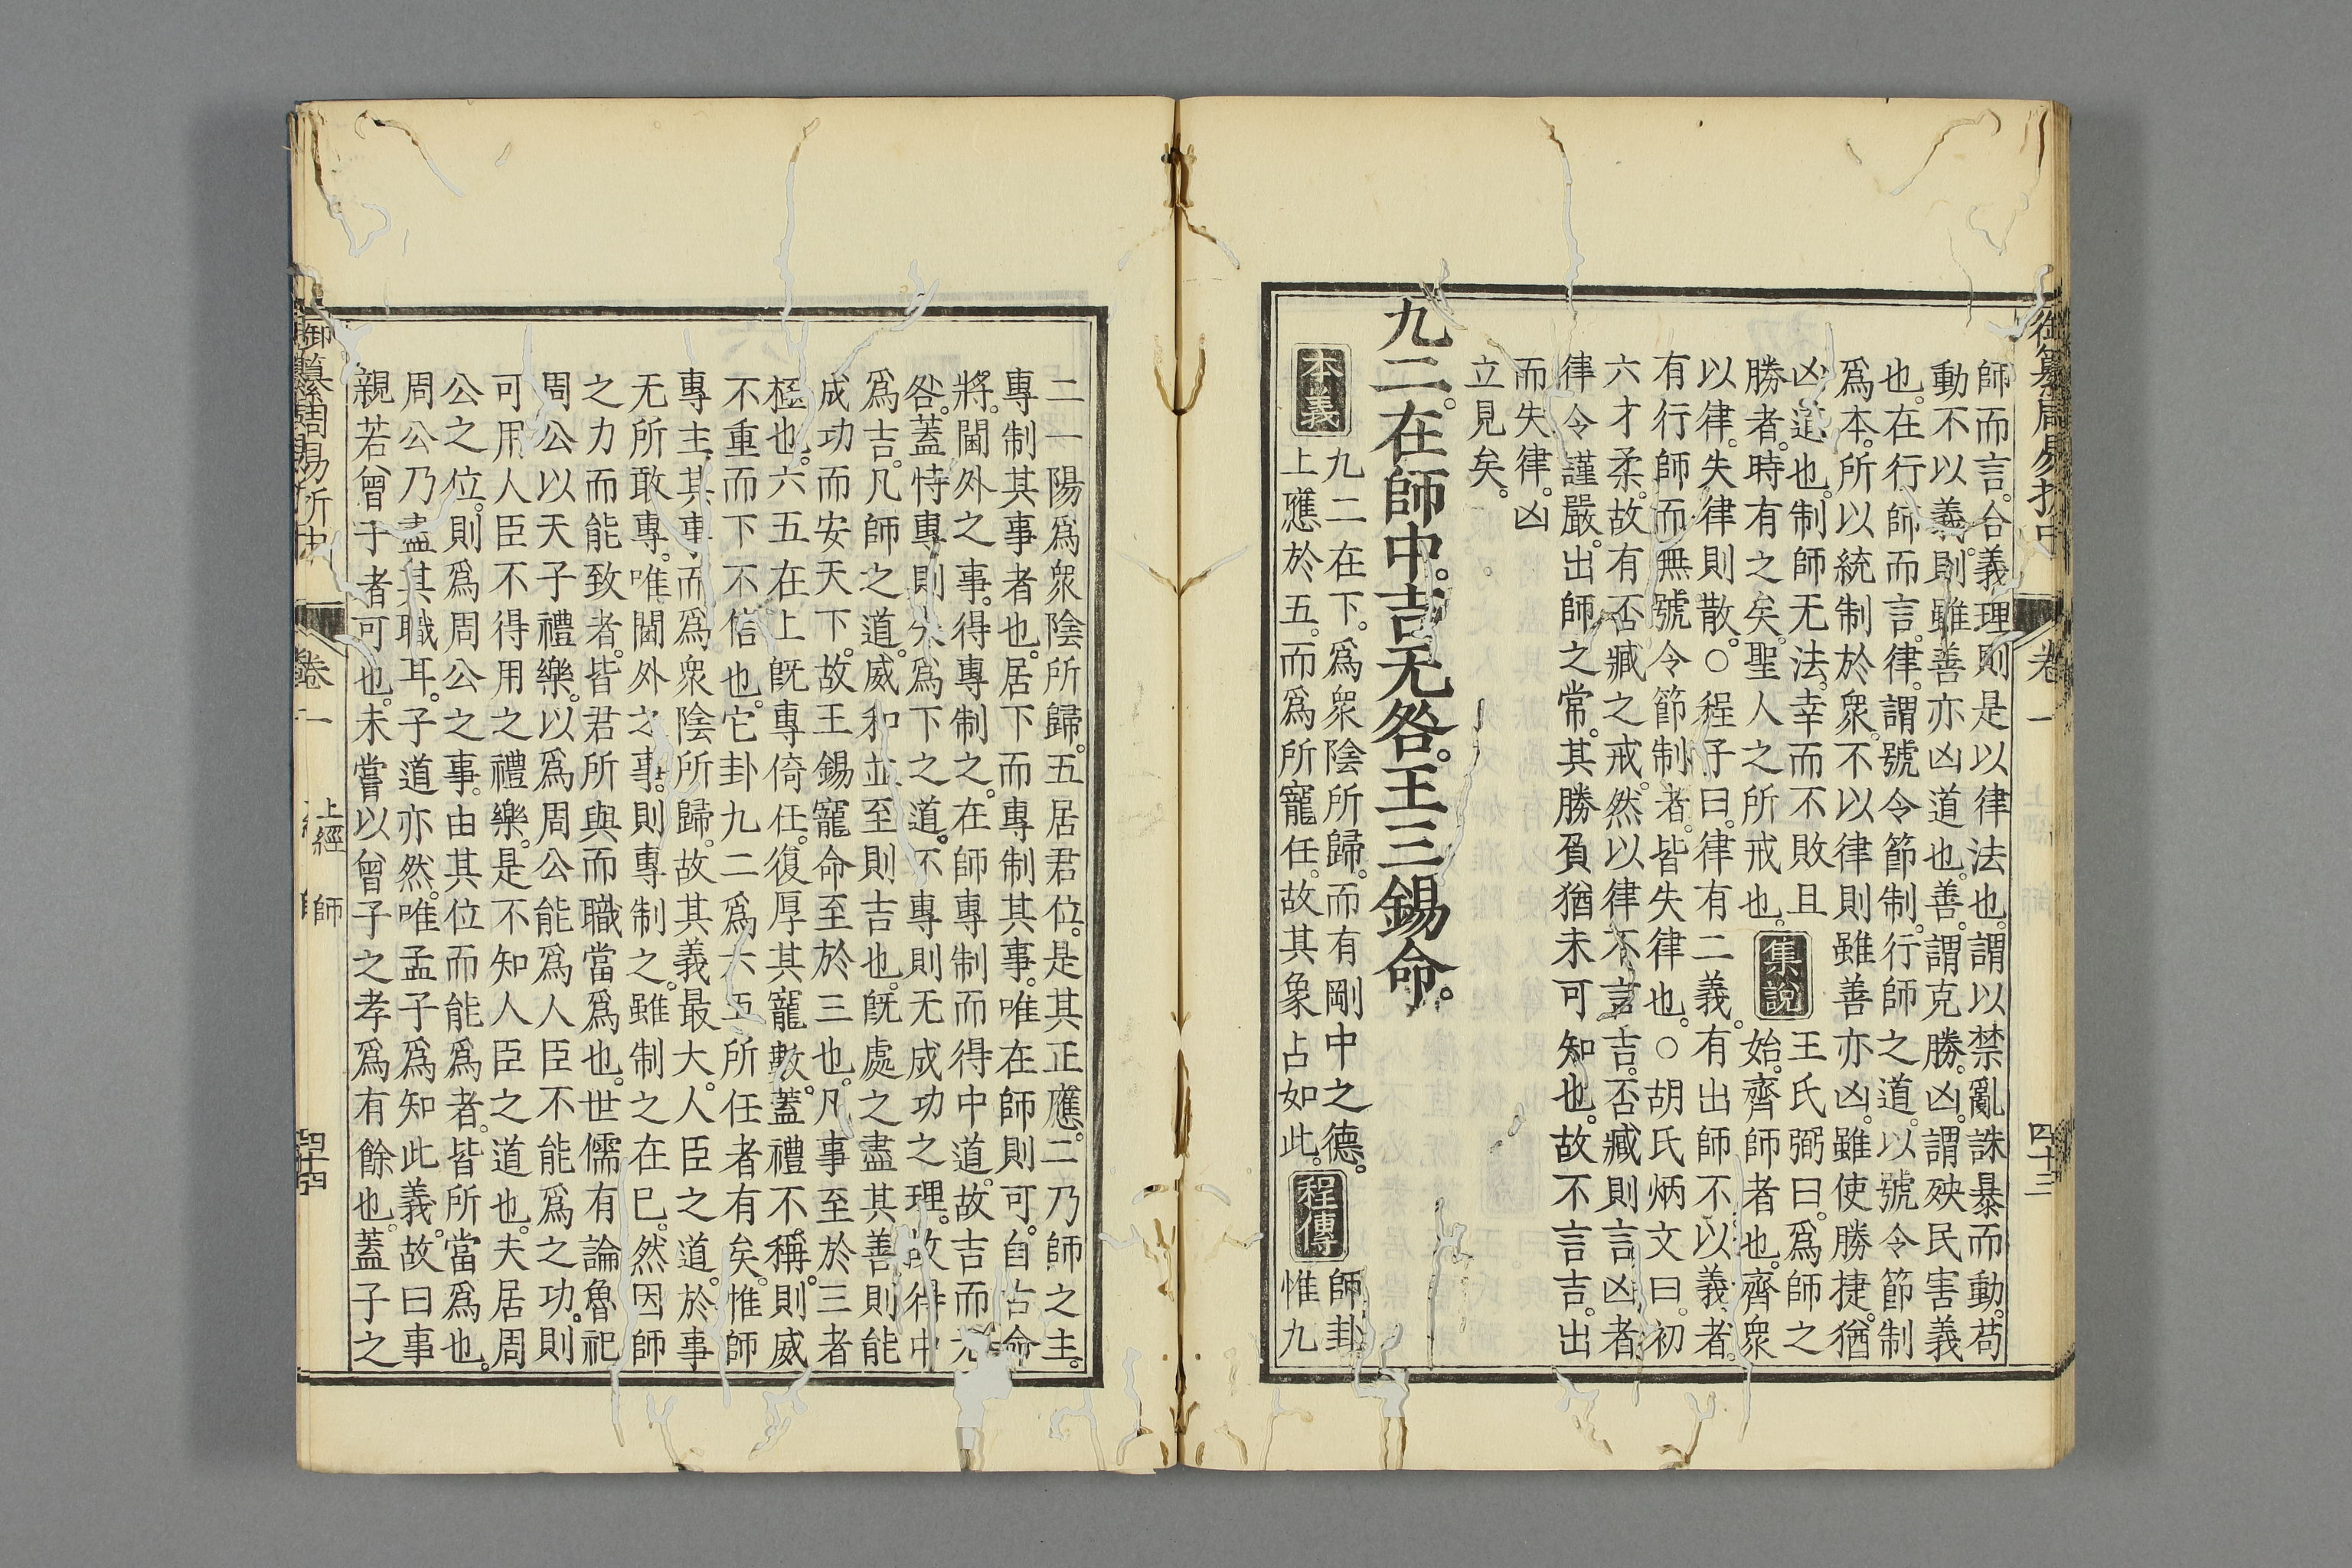 御纂周易折中 卷一 四十三
師而言。合義理則是以律法也。謂以禁亂誅暴而動。苟
動不以義。則雖善亦凶道也。善。謂克勝。凶。謂殃民害義
也。在行師而言。律。謂號令節制。行師之道。以號令節制
爲本。所以統制於衆。不以律則雖善亦凶。雖使勝捷。猶
凶道也。制師无法。幸而不敗且
勝者。時有之矣。聖人之所戒也。
集說
王氏弼曰。爲師之
始。齊師者也。齊衆
以律。失律則散。○程子曰。律有二義。有出師不以義者。
有行師而無號令節制者。皆失律也。○胡氏炳文曰。初
六才柔。故有否臧之戒。然以律不言吉。否臧則言凶者。
律令謹嚴。出師之常。其勝負猶未可知也。故不言吉。出
而失律。凶
立見矣。
九二。在師中。吉无咎。王三錫命。
本義
九二在下。爲衆陰所歸。而有剛中之德。
上應於五。而爲所寵任。故其象占如此。
程傳
師卦
惟九
二一陽爲衆陰所歸。五居君位。是其正應。二乃師之主。
專制其事者也。居下而專制其事。唯在師則可。自古命
將。閫外之事。得專制之。在師專制而得中道。故吉而无
咎。蓋恃專則失爲下之道。不專則无成功之理。故得中
爲吉。凡師之道。威和並至則吉也。旣處之盡其善。則能
成功而安天下。故王錫寵命至於三也。凡事至於三者
極也。六五在上旣專倚任。復厚其寵數。蓋禮不稱。則威
不重而下不信也。它卦九二爲六五所任者有矣。惟師
專主其事而爲衆陰所歸。故其義最大。人臣之道。於事
无所敢專。唯閫外之事。則專制之。雖制之在已。然因師
之力而能致者。皆君所與而職當爲也。世儒有論魯祀
周公以天子禮樂。以爲周公能爲人臣不能爲之功。則
可用人臣不得用之禮樂。是不知人臣之道也。夫居周
公之位。則爲周公之事。由其位而能爲者。皆所當爲也。
周公乃盡其職耳。子道亦然。唯孟子爲知此義。故曰事
親若曾子者可也。未嘗以曾子之孝爲有餘也。蓋子之
御纂周易折中 卷一 上經 師 四十四